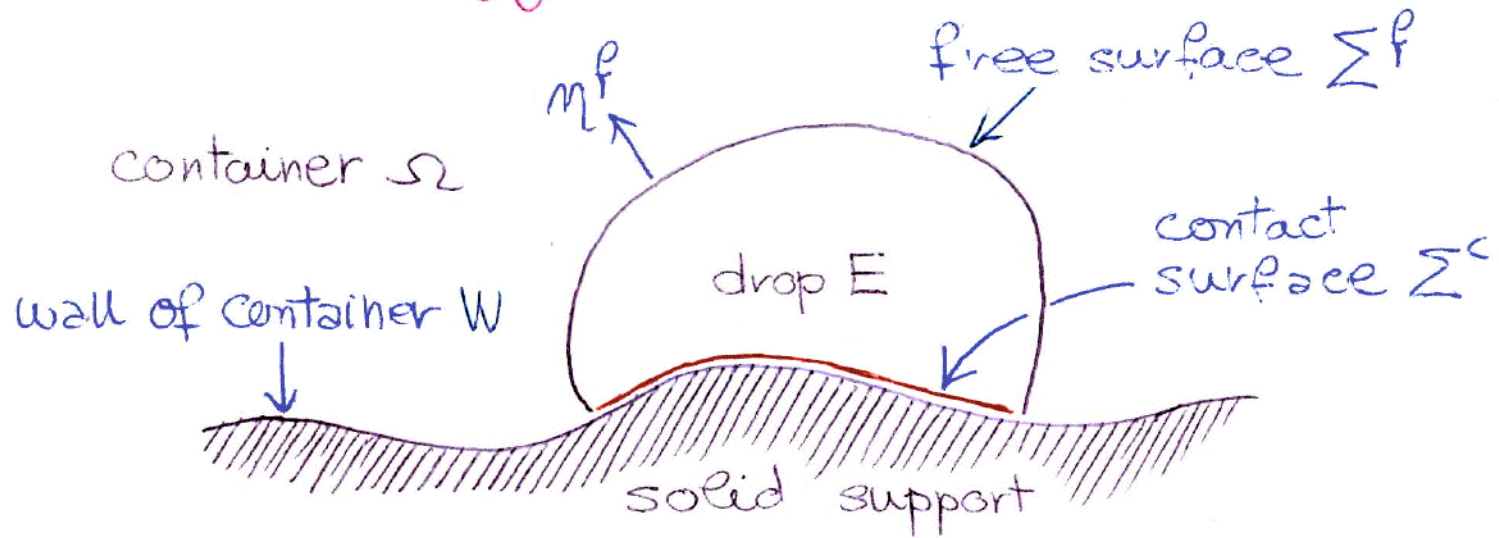 free surface Σᶠ
ηᶠ
container Ω
contact
surface Σᶜ
drop E
wall of container W
solid support